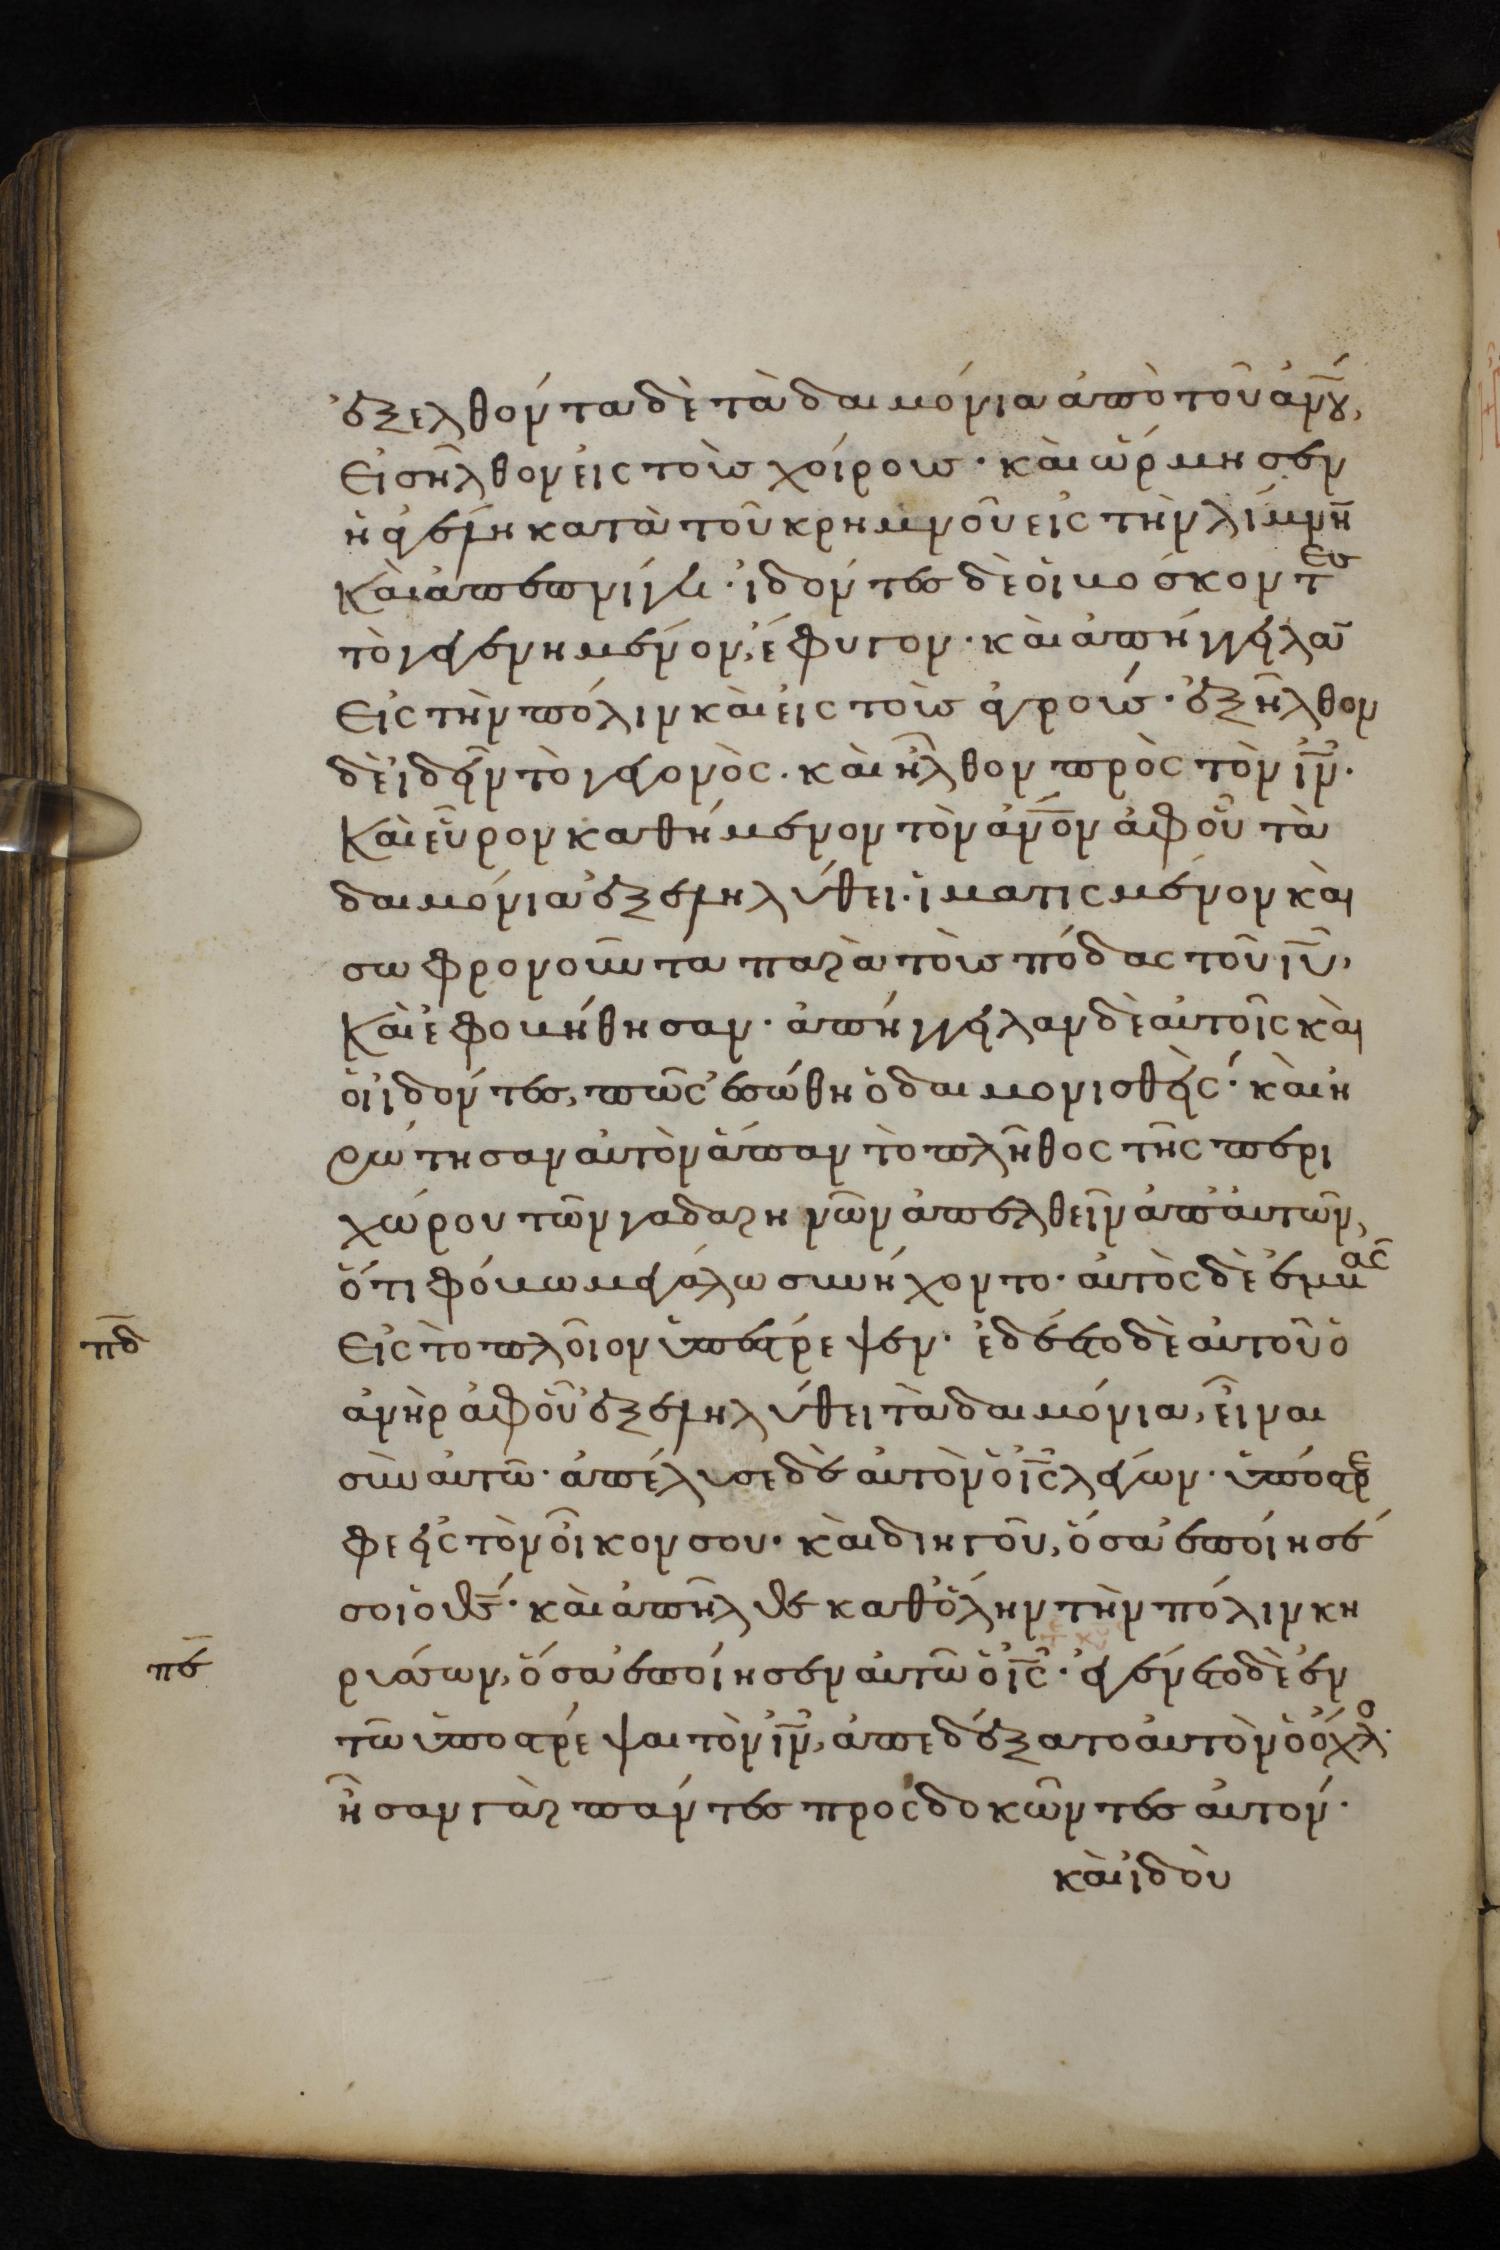 ἐξελθόντα δὲ τὰ δαιμόνια ἀπὸ τοῦ ἀν̅ου,
εἰσῆλθον εἰς τοὺς χοίρους· καὶ ὥρμησεν
ἡ ἀγέλη κατὰ τοῦ κρημνοῦ εἰς τὴν λίμνη̅
καὶ ἀπεπνίγη· ἰδόντες δὲ οἱ βόσκοντες
τὸ γεγενημένον, ἔφυγον· καὶ ἀπήγγειλα̅
εἰς τὴν πόλιν καὶ εἰς τοὺς ἀγρούς· ἐξῆλθον
δὲ ἰδεῖν τὸ γεγονὸς· καὶ ἦλθον πρὸς τὸν ἰ̅ν̅·
καὶ εὗρον καθήμενον τὸν ἄν̅ο̅ν ἀφ οὗ τὰ
δαιμόνια ἐξεληλύθει· ἱματισμένον καὶ
σωφρονοῦντα παρὰ τοὺς πόδας τοῦ ἰ̅υ̅,
καὶ ἐφοβήθησαν· ἀπήγγειλαν δὲ αὐτοῖς καὶ
οἱ ἰδόντες, πῶς ἐσώθη ὁ δαιμονισθείς· καὶ ἠ
ρώτησαν αὐτὸν ἅπαν τὸ πλῆθος τῆς περι
χώρου τῶν γαδαρηνῶν ἀπελθεῖν ἀπ αὐτῶν,
ὅτι φόβω μεγάλω συνείχοντο· αὐτὸς δὲ ἐμβὰς
π̅δ̅ εἰς τὸ πλοῖον ὑπέστρεψεν· ἐδέετο δὲ αὐτοῦ ὁ
ἀνὴρ ἀφ οὗ ἐξεληλύθει τὰ δαιμόνια, εἶναι
σὺν αὐτῶ· ἀπέλυσε δὲ αὐτὸν ὁ ἰ̅ς̅ λέγων· ὑπόστρε
φε εἰς τὸν οἶκον σου· καὶ διηγοῦ, ὅσα ἐποίησέ
σοι ὁ θ̅ς̅· καὶ ἀπῆλθε καθ ὅλην τὴν πόλιν κη
π̅ε̅ ρύσσων, ὅσα ἐποίησεν αὐτῶ ὁ ἰ̅ς̅· ἐγένετο δὲ ἐν
τῶ ὑποστρέψαι τὸν ἰ̅ν̅, ἀπεδέξατο αὐτὸν ὁ ὄχλο·
ἦσαν γὰρ πάντες προσδοκῶντες αὐτόν·
καὶ ἰδοὺ